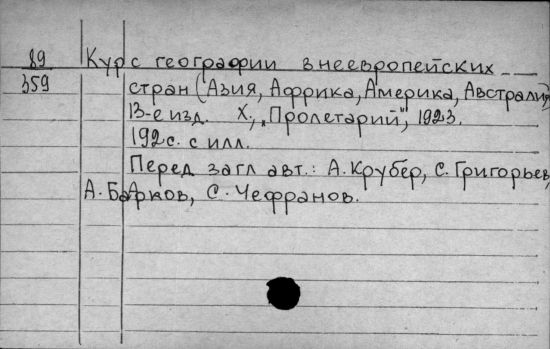 89 Курс географии внеевропейских
359 стран (Азия, Африка, Америка, Австралия)
13-е изд. Х., „Пролетарий", 1923.
192 с. с илл.
Перед загл авт.: А. Крубер, С. Григорьев,
А. Барков, С. Чефранов.